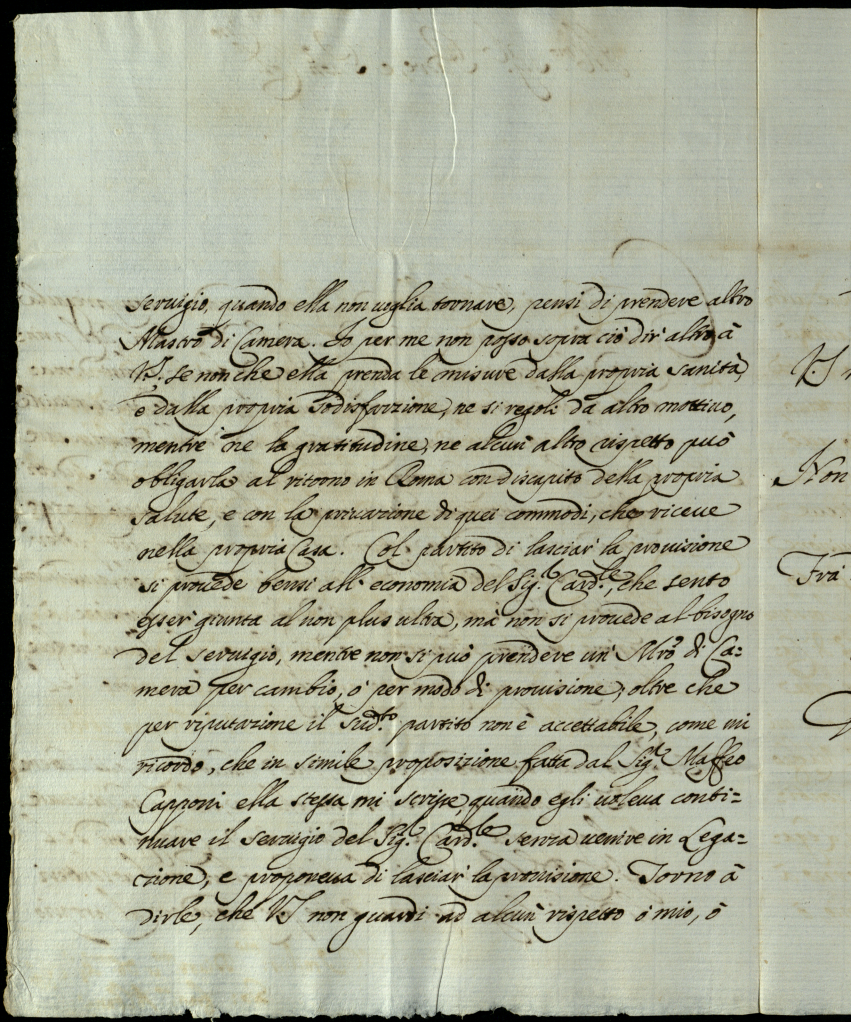 seruigio, quando ella non uoglia tornare, pensi di prendere altro
Mastro di Camera. Io per me non posso sopra ciò dir' altro à
V.S. se non che ella prenda le misure dalla propria sanità,
e dalla propria sodisfazzione, ne si regoli da altro mottiuo,
mentre ne la gratitudine, ne alcun' altro rispetto può
obligarla al ritorno in Roma con discapito della propria
salute, e con la priuazione di quei commodi, che riceue
nella propria Casa. Col partito di lasciar' la prouisione
si prouede bensi all' economia del Sig.r Card.le, che sento
esser' giunta al non plus ultra, mà non si prouede al bisogno
del seruigio, mentre non si può prendere un' Mro di Ca=
mera per cambio, o' per modo di prouisione; oltre che
per riputazione il sud.to partito non è accettabile, come mi
ricordo, che in simile proposizione fatta dal Sig.r Maffeo
Capponi ella stessa mi scrisse, quando egli uoleua conti=
nuare il seruigio del Sig.r Card.le senza uenire in Lega=
zione, e proponeua di lasciar' la prouisione. Torno à
dirle, che VS non guardi ad alcun' rispetto ò mio, ò
V.S
Non
Frà